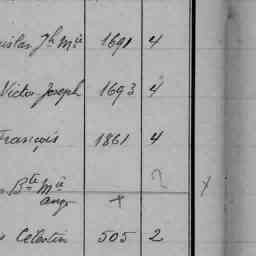 Jh Mie 1691 4
Victor Joseph 1693 4
François 1861 4
Bte Mie 2 x
ange +
Célestin 505 2